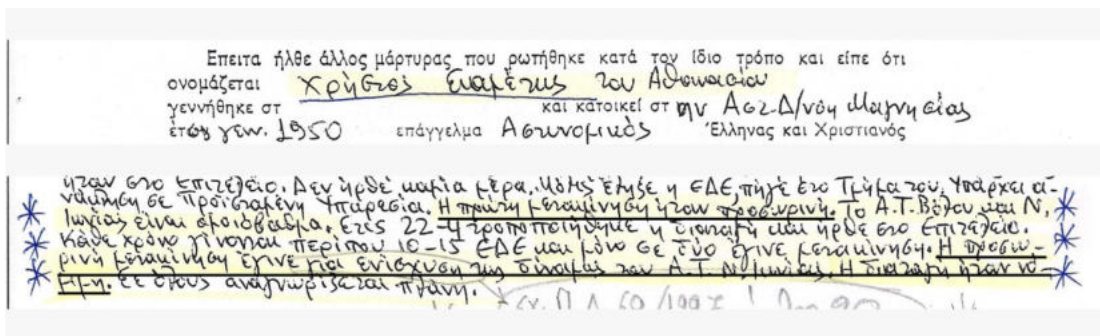 Επειτα ήλθε άλλος μάρτυρας που ρωτήθηκε κατά τον ίδιο τρόπο και είπε ότι
ονομάζεται Χρήστος του Αθανασίου
γεννήθηκε στ και κατοικεί στ ην Αστ. Δ/νση Μαγνησίας
έτος γεν. 1950 επάγγελμα Αστυνομικός Έλληνας και Χριστιανός
ήταν στο Επιτελείο. Δεν ήρθε καμία μέρα. Μόλις έληξε η ΕΔΕ, πήγε στο Τμήμα του. Υπάρχει
σε προϊσταμένη Υπηρεσία. Η πρώτη μετακίνηση ήταν προσωρινή. Το Α.Τ. Βόλου και Ν.
Ιωνίας είναι ομοιόβαθμα. Στις 22-4 τροποποιήθηκε η διαταγή και ήρθε στο Επιτελείο.
Κάθε χρόνο γίνονται περίπου 10-15 ΕΔΕ και μόνο σε δύο έγινε μετακίνηση. Η προσω-
ρινή μετακίνηση έγινε για ενίσχυση της δύναμης του Α.Τ. Ν. Ιωνίας. Η διαταγή ήταν νό-
μιμη. Σε όλους αναγνωρίζεται πλάνη.